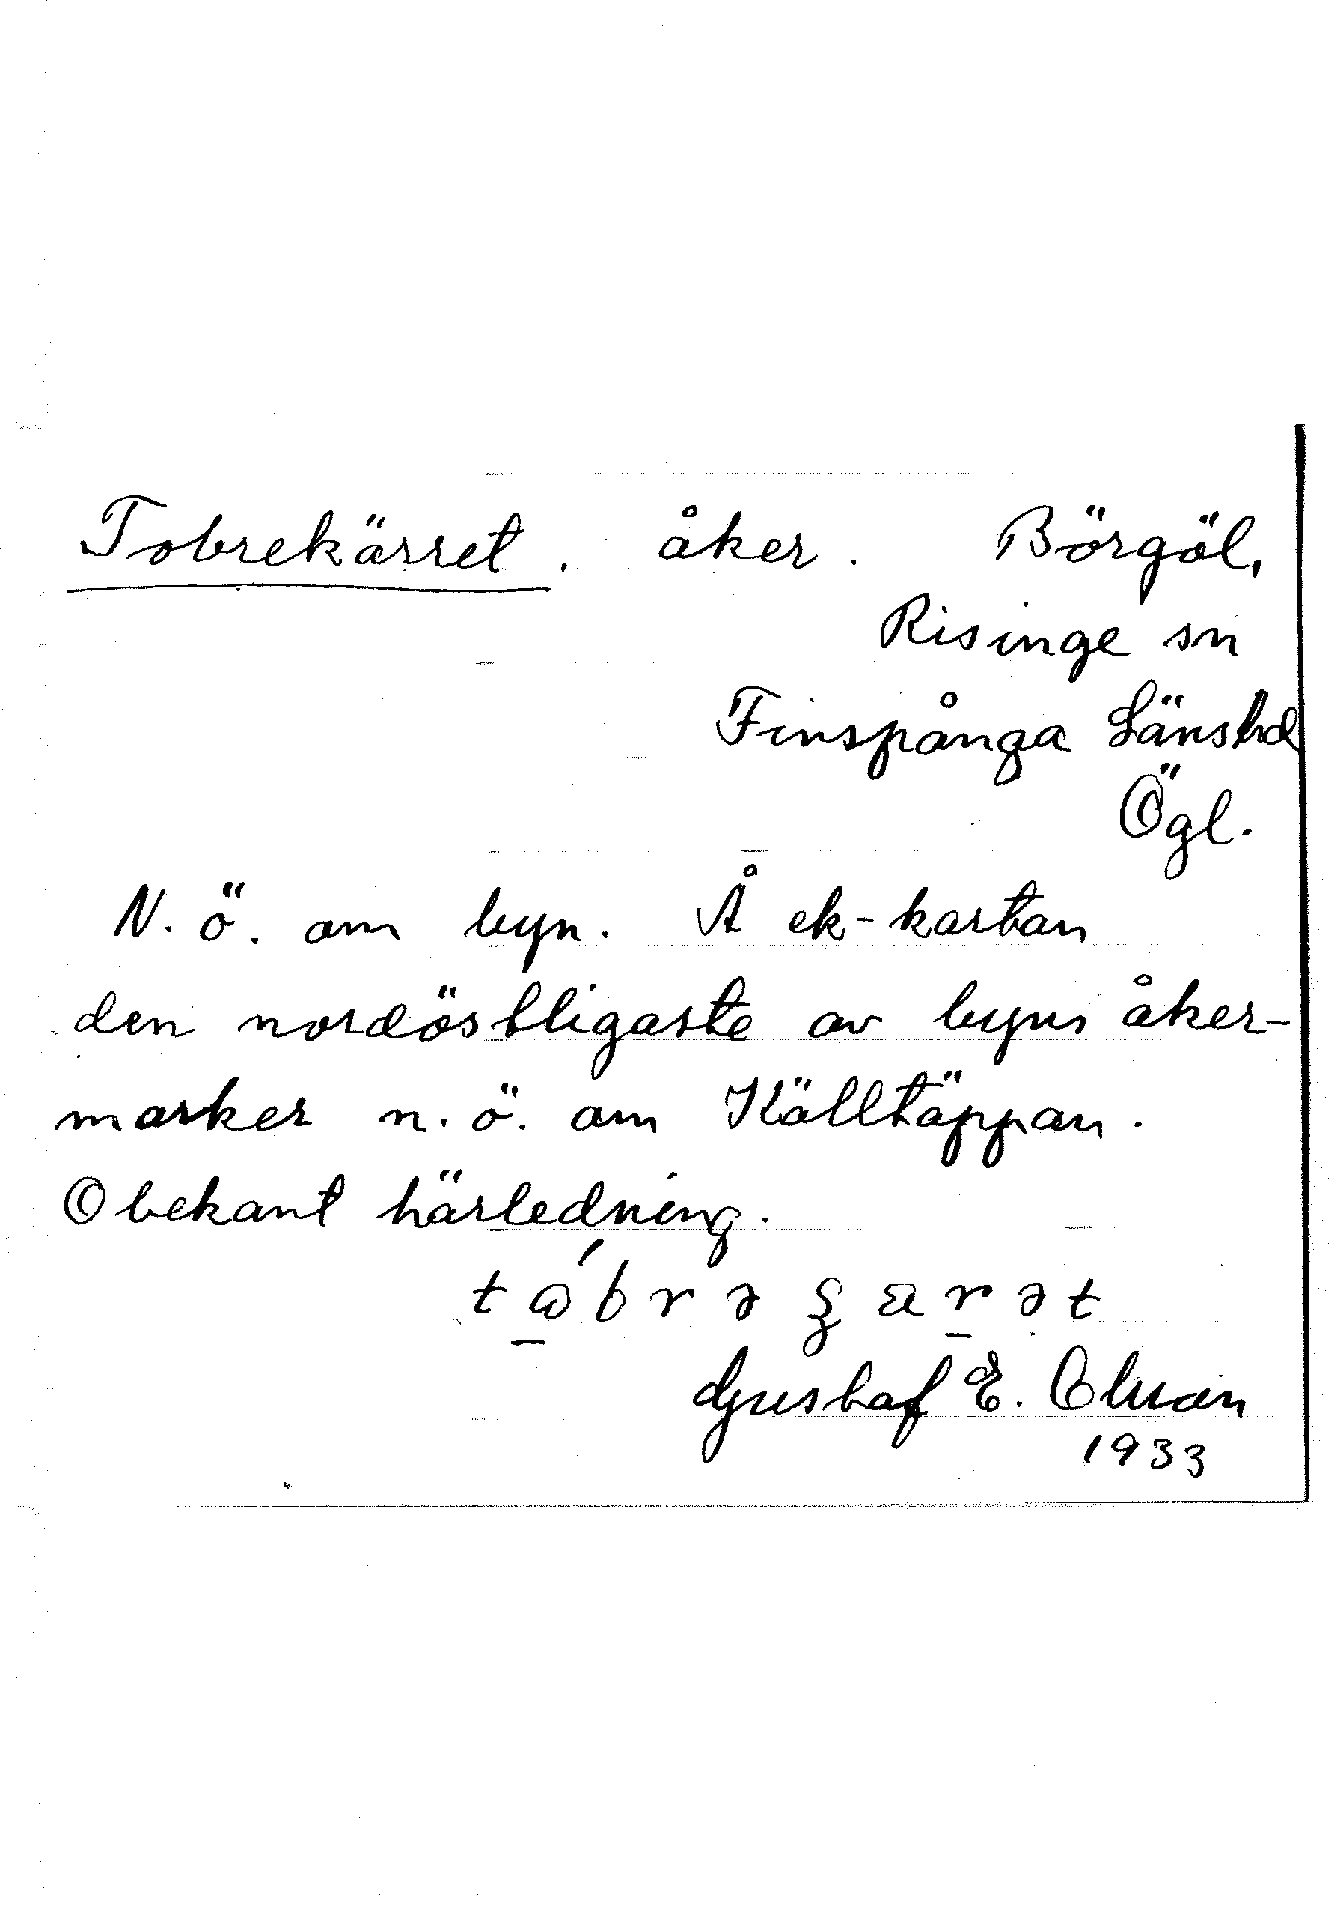 Tobrekärret. åker. Börgöl,
Risinge sn
Finspånga Länshd
Ögl.
N.ö. om byn. Å ek-kartan
den nordöstligaste av byns åker-
marker n.ö. om Källtäppan.
Obekant härledning.
Gustaf E.
1933